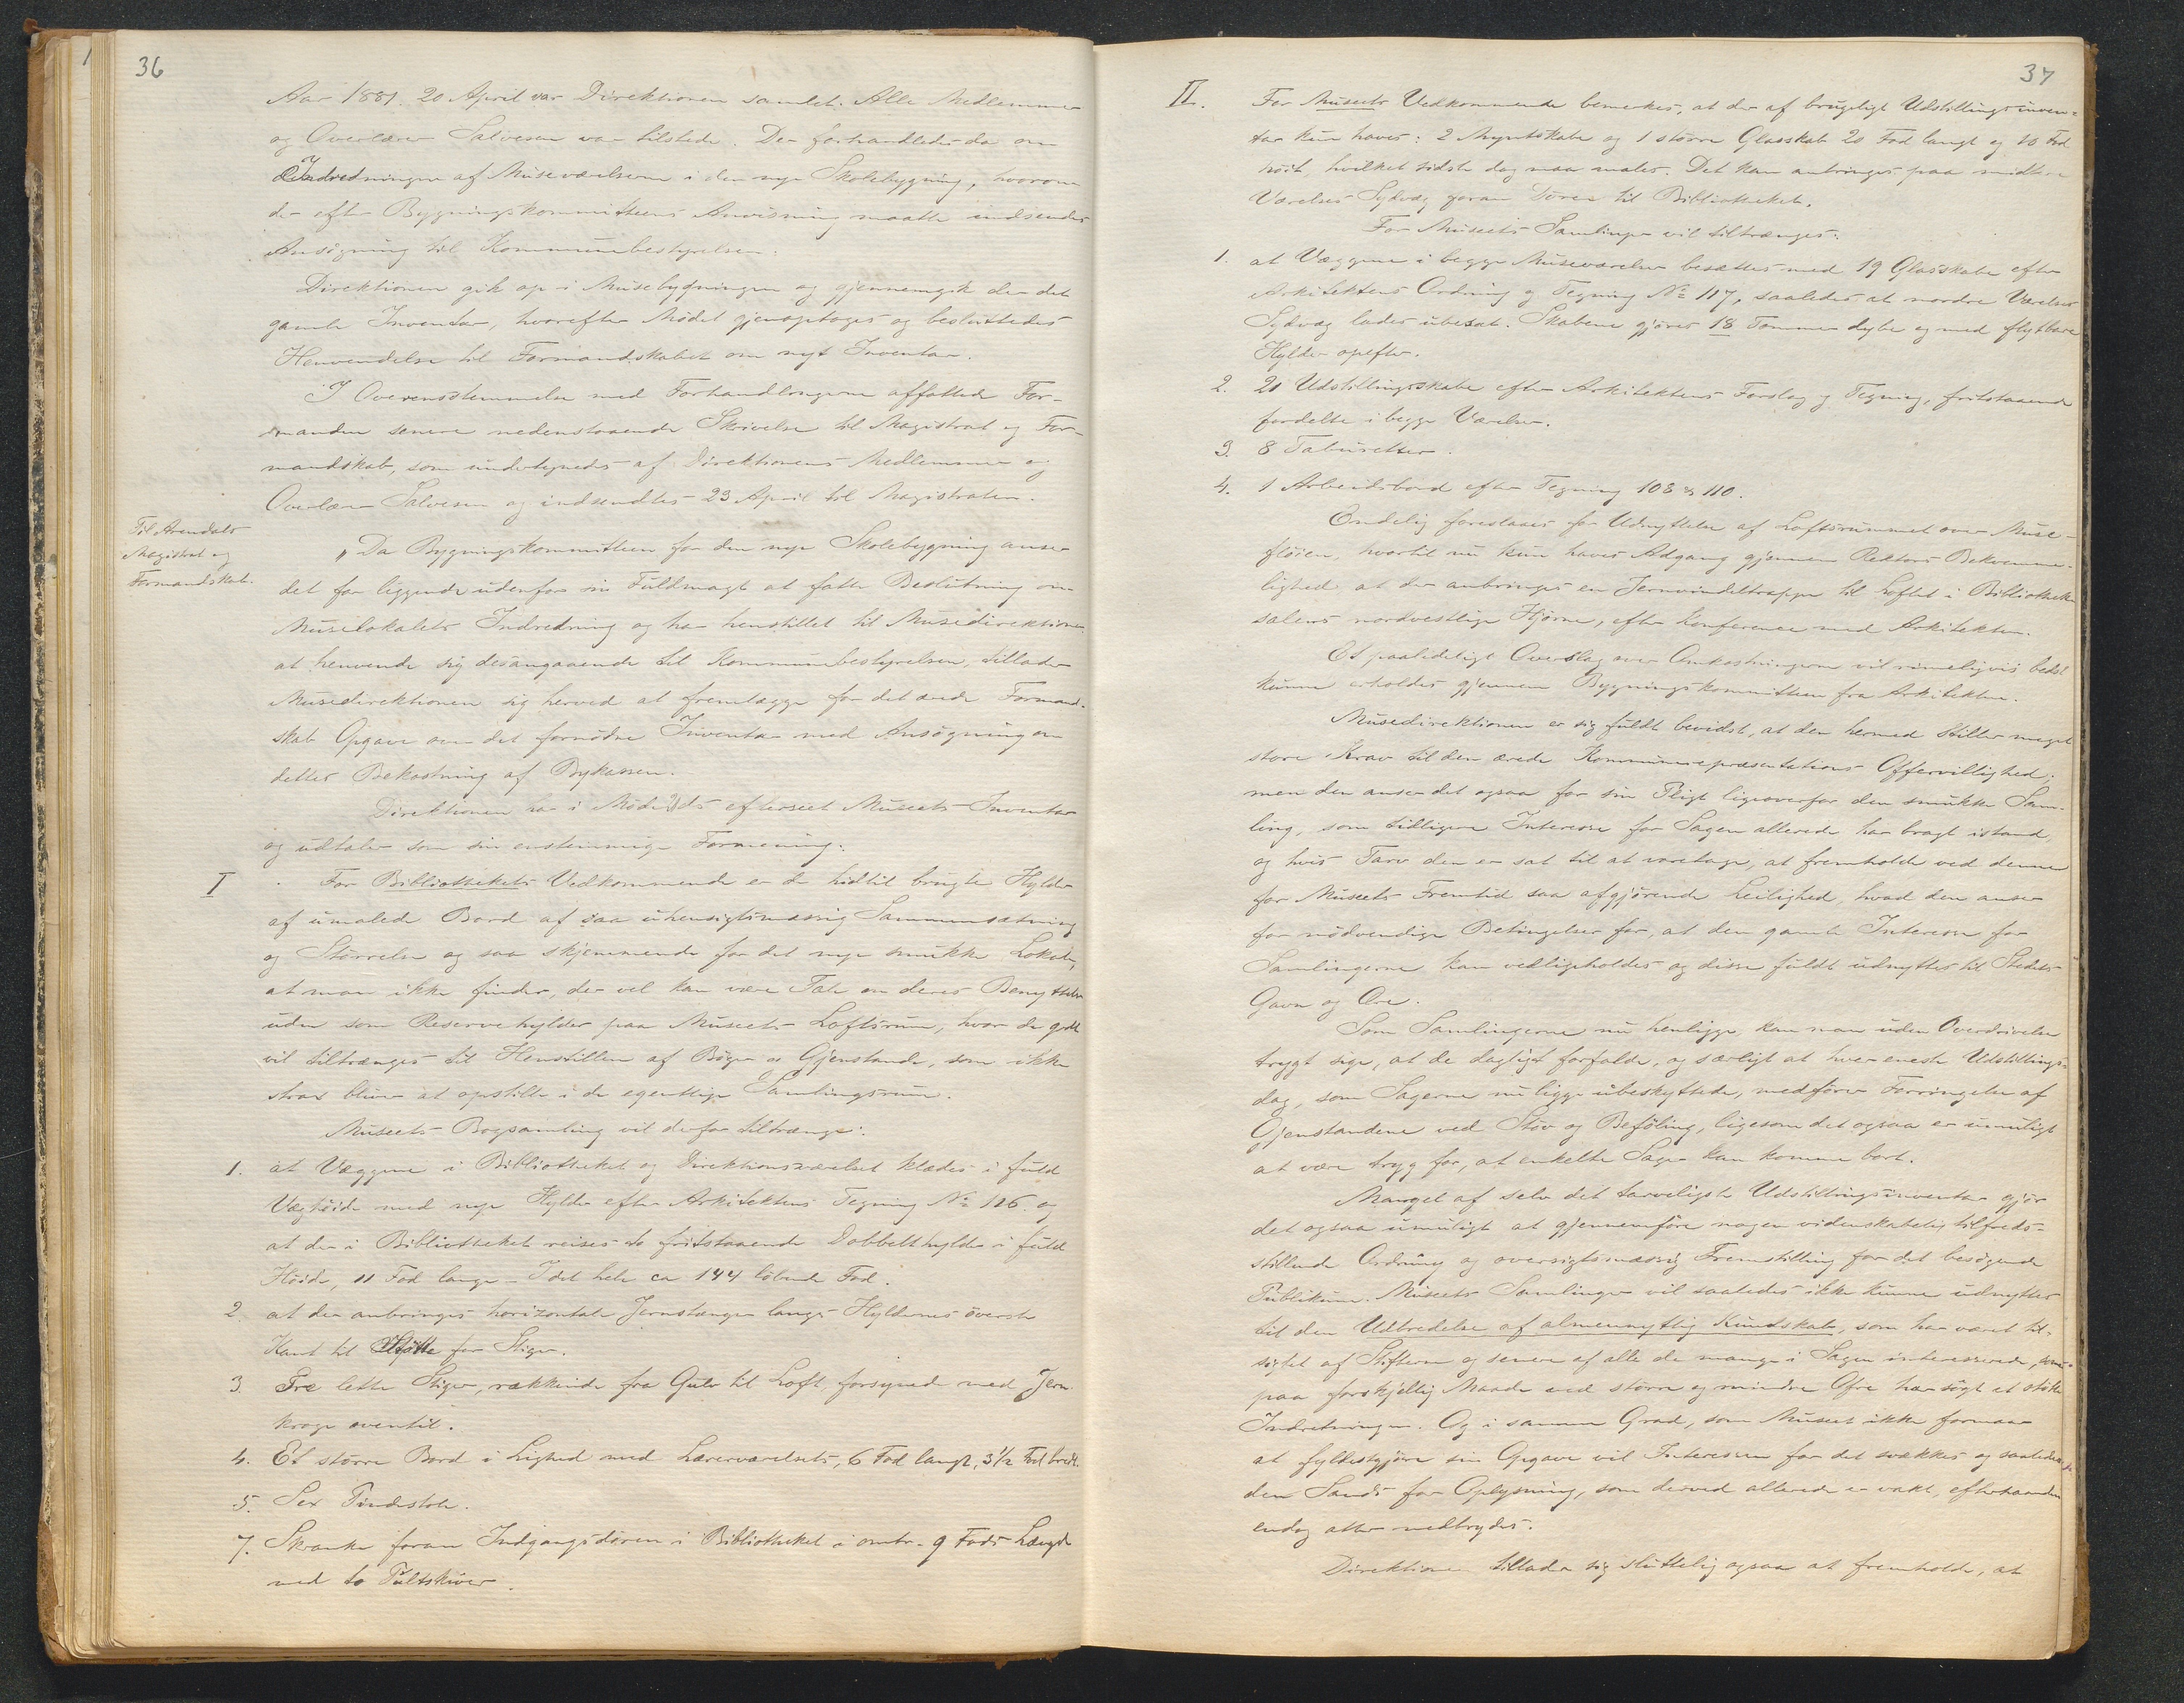 36
Aar 1881. 20 April var Direktionen samlet. Alle Medlemmer
og Overlærer Salvesen var tilstede. Der forhandledes da om
Indredningen af Museværelserne i den nye Skolebygning, hvorom
der efter Bygningskommitteens Anvisning maatte indsendes
Ansögning til Kommunebestyrelsen.
Direktionen gik op i Musebygningen og gjennemgik der det
gamle Inventar, hvorefter Mödet gjenoptoges og besluttedes
Henvendelse til Formandskabet om nyt Inventar.
I Overensstemmelse med Forhandlingerne affattede For-
manden senere nedenstaaende Skrivelse til Magistrat og For-
mandskab, som undertegnedes af Direktionens Medlemmer og
Overlærer Salvesen og indsendtes 23 April til Magistraten.
Til Arendals
Magistrat og
Formandskab.
„Da Bygningskommitteen for den nye Skolebygning anser
det for liggende udenfor sin Fuldmagt at fatte Beslutning om
Muselokalets Indredning og har henstillet til Musedirektionen
at henvende sig desangaaende til Kommunebestyrelsen, tillader
Musedirektionen sig herved at fremlægge for det ærede Formand-
skab Opgave over det fornödne Inventar med Ansögning om
dettes Bekostning af Bykassen.
Direktionen har i Möde Ds efterseet Museets Inventar
og udtaler som sin enstemmige Formening:
I
For Bibliothekets Vedkommende er de hidtil brugte Hylder
af umalede Bord af saa uhensigtsmæssig Sammensætning
og Störrelse og saa skjæmmende for det nye smukke Lokale,
at man ikke finder, der vel kan være Tale om deres Benyttelse
uden som Reservehylder paa Museets Loftsrum, hvor de godt
vil tiltrænges til Henstillen af Böger og Gjenstande, som ikke
strax bliver at opstille i de egentlige Samlingsrum.
Museets Bogsamling vil derfor tiltrænge:
1. at Væggene i Bibliotheket og Direktionsværelset klædes i fuld
Væghöide med nye Hylder efter Arkitektens Tegning No 126. og
at der i Bibliotheket reises to fritstaaende Dobbelthylder i fuld
Höide, 11 Fod lange – I det hele ca 144 löbende Fod.
2. at der anbringes horizontale Jernstænger langs Hyldernes överste
Kant til Stötte for Stiger.
3. Tre lette Stiger, rækkende fra Gulv til Loft, forsynede med Jern-
kroge oventil.
4. Et större Bord i Lighed med Lærerværelsets, 6 Fod langt, 3½ Fod bredt.
5. Sex Pindestole.
7. Skranke foran Indgangsdören i Bibliotheket i omtr. 9 Fods Længde
med to Pultskiver.
37
II.
For Museets Vedkommende bemerkes, at der af brugeligt Udstillingsinven-
tar kun haves: 2 Myntskabe og 1 större Glasskab 20 Fod langt og 10 Fod
höit, hvilket sidste dog maa males. Det kan anbringes paa midtre
Værelses Sydvæg foran Dören til Bibliotheket.
For Museets Samlinger vil tiltrænges:
1. at Væggene i begge Museværelser besættes med 19 Glasskabe efter
Arkitektens Ordning og Tegning No 117, saaledes at nordre Værelses
Sydvæg lades ubesat. Skabene gjöres 18 Tommer dybe og med flytbare
Hylder opefter.
2. 21 Udstillingsskabe efter Arkitektens Forslag og Tegning, fritstaaende
fordelte i begge Værelser.
3. 8 Taburetter.
4. 1 Arbeidsbord efter Tegning 108 & 110.
Endelig foreslaaes for Udnyttelse af Loftsrummet over Muse-
flöien, hvortil nu kun haves Adgang gjennem Rektors Bekvemme-
lighed, at der anbringes en Jernvindeltrappe til Loftet i Bibliothek-
salens nordvestlige Hjörne, efter Konference med Arkitekten.
Et paalideligt Overslag over Omkostningerne vil rimeligvis bedst
kunne erholdes gjennem Bygningskommitteen fra Arkitekten.
Musedirektionen er sig fuldt bevidst, at den hermed stiller meget
store Krav til den ærede Kommunerepræsentations Offervillighed;
men den anser det ogsaa for sin Pligt ligeoverfor den smukke Sam-
ling, som tidligere Interesse for Sagen allerede har bragt istand,
og hvis Tarv den er sat til at varetage, at fremholde ved denne
for Museets Fremtid saa afgjörende Leilighed, hvad den anser
for nödvendige Betingelser for, at den gamle Interesse for
Samlingerne kan vedligeholdes og disse fuldt udnyttes til Stedets
Gavn og Ære.
Som Samlingerne nu henligge, kan man uden Overdrivelse
trygt sige, at de dagligt forfalde, og særligt at hver eneste Udstillings-
dag, som Sagerne nu ligge ubeskyttede, medförer Forringelse af
Gjenstandene ved Stöv og Beföling, ligesom det ogsaa er umuligt
at være tryg for, at enkelte Sager kan komme bort.
Mangel af selv det tarveligste Udstillingsinventar gjör
det ogsaa umuligt at gjennemföre nogen videnskabelig tilfreds-
stillende Ordning og oversigtsmæssig Fremstilling for det besögende
Publikum. Museets Samlinger vil saaledes ikke kunne udnyttes
til den Udbredelse af almennyttig Kundskab, som har været til-
sigtet af Stifterne og senere af alle de mange i Sagen interesserede, som
paa forskjellig Maade ved större og mindre Ofre har sögt at stötte
Indretningen. Og i samme Grad, som Museet ikke formaar
at fyldestgjöre sin Opgave vil Interessen for det svækkes og saaledes
den Sands for Oplysning, som derved allerede er vakt, efterhaanden
endog atter nedbrydes.
Direktionen tillader sig sluttelig ogsaa at fremholde, at